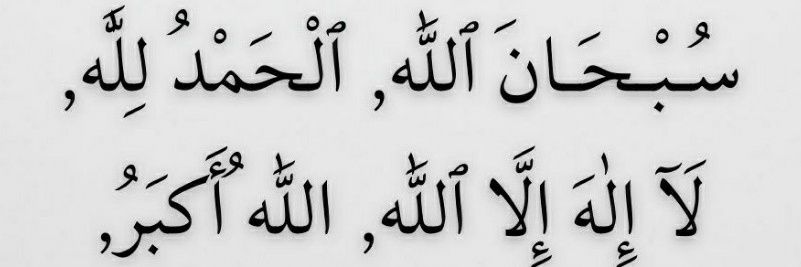 سُبْحَانَ ٱللَّه, ٱلْحَمْدُ لِلَّه,
لَآ إِلٰهَ إِلَّا ٱللَّه, اللَّه أَُكبَرُ,